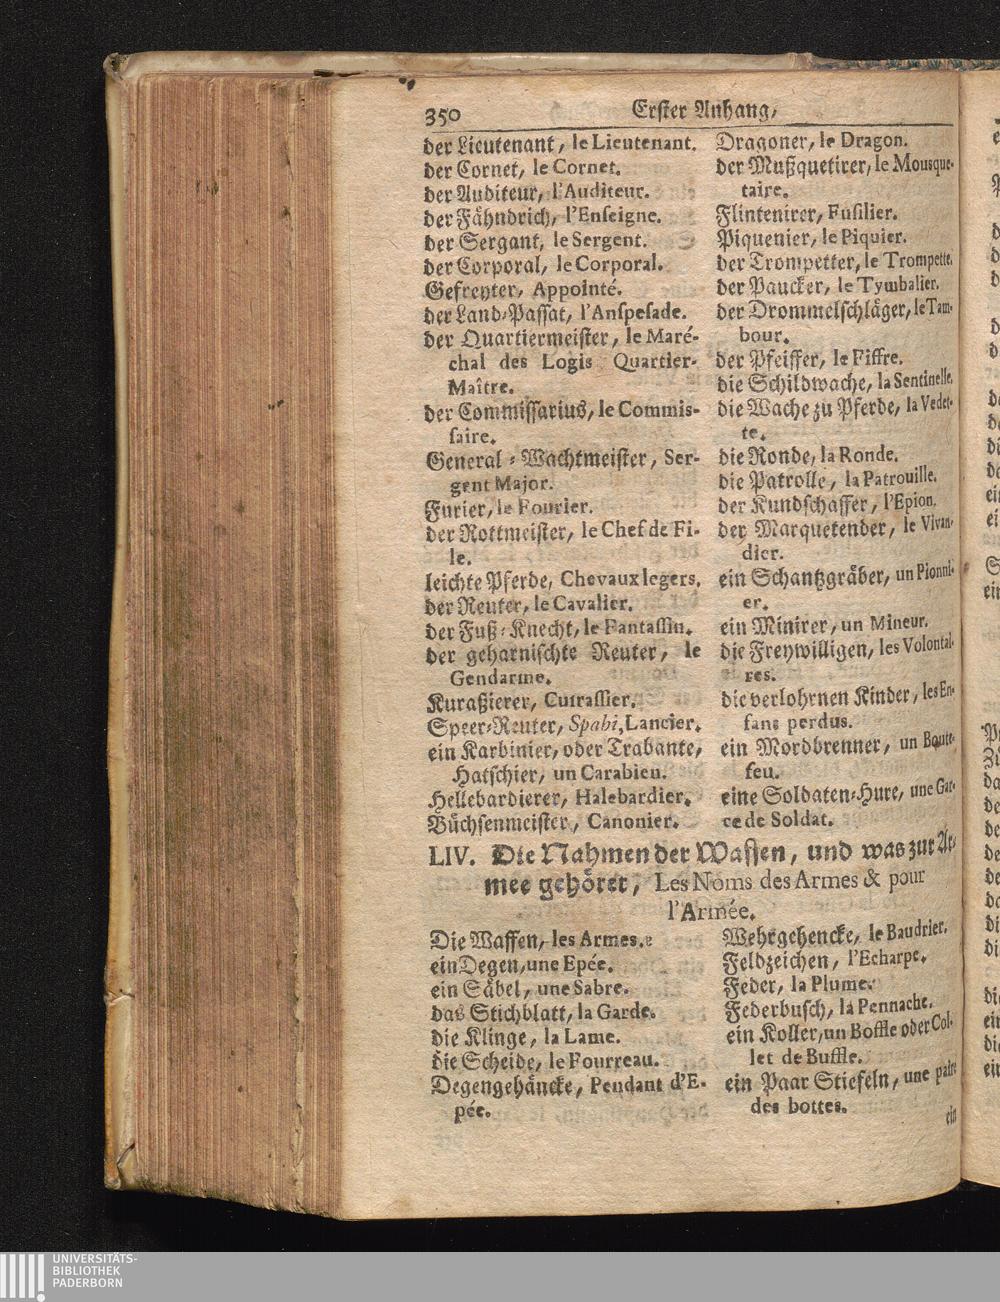 350 Erster Anhang,
der Lieutenant, le Lieutenant.
der Cornet, le Cornet.
der Auditeur, l'Auditeur.
der Fähndrich, l'Enseigne.
der Sergant, le Sergent.
der Corporal, le Corporal.
Gefreyter, Appointé.
der Land-Passat, l'Anspesade.
der Quartiermeister, le Maré-
chal des Logis Quartier-
Maître.
der Commissarius, le Commis-
saire.
General-Wachtmeister, Ser-
gent Major.
Furier, le Fourier.
der Rottmeister, le Chef de Fi-
le.
leichte Pferde, Chevaux legers.
der Reuter, le Cavalier.
der Fuß-Knecht, le Fantassin.
der geharnischte Reuter, le
Gendarme.
Kuraßierer, Cuirassier.
Speer-Reuter, Spahi, Lancier.
ein Karbinier, oder Trabante,
Hatschier, un Carabieu.
Hellebardierer, Halebardier.
Büchsenmeister, Canonier.
Dragoner, le Dragon.
der Mußquetirer, le Mousque-
taire.
Flintenirer, Fusilier.
Piquenier, le Piquier.
der Trompetter, le Trompette.
der Paucker, le Tymbalier.
der Drommelschläger, le Tam-
bour.
der Pfeiffer, le Fiffre.
die Schildwache, la Sentinelle.
die Wache zu Pferde, la Vedet-
te.
die Ronde, la Ronde.
die Patrolle, la Patrouille.
der Kundschaffer, l'Epion.
der Marquetender, le Vivan-
dier.
ein Schantzgräber, un Pionni-
er.
ein Minirer, un Mineur.
die Freywilligen, les Volontai-
res.
die verlohrnen Kinder, les En-
fans perdus.
ein Mordbrenner, un Boute-
feu.
eine Soldaten-Hure, une Gar-
ce de Soldat.
LIV. Die Nahmen der Waffen, und was zur Ar-
mee gehöret, Les Noms des Armes & pour
l'Armée.
Die Waffen, les Armes.
ein Degen, une Epée.
ein Säbel, une Sabre.
das Stichblatt, la Garde.
die Klinge, la Lame.
die Scheide, le Fourreau.
Degengehäncke, Pendant d'E-
pée.
Wehrgehencke, le Baudrier.
Feldzeichen, l'Echarpe.
Feder, la Plume.
Federbusch, la Pennache.
ein Koller, un Boffle oder Col-
let de Buffle.
ein Paar Stiefeln, une paire
des bottes.
ein
UNIVERSITÄTS-
BIBLIOTHEK
PADERBORN